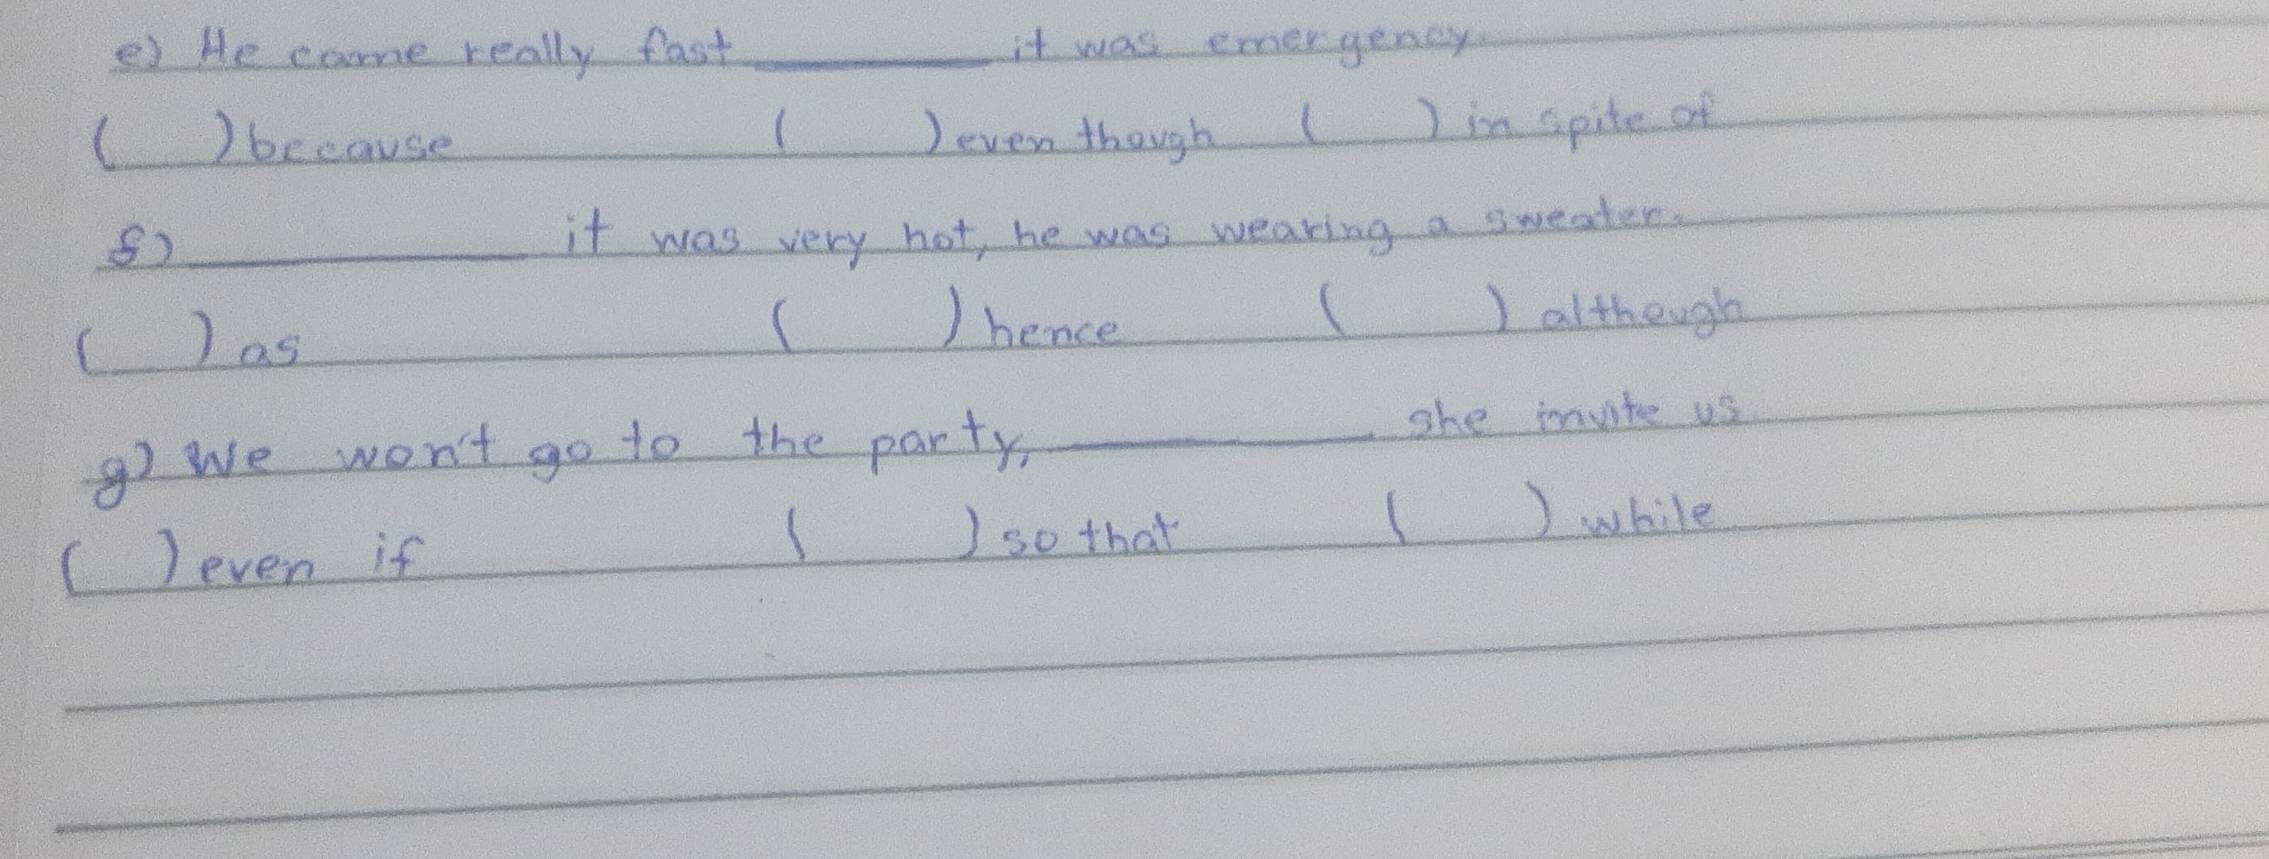 e) He came really fast ________ it was emergency.
( ) because ( ) even though ( ) in spite of
f) ________ it was very hot, he was wearing a sweater.
( ) as ( ) hence ( ) although
g) We won't go to the party, ________ she invite us
( ) even if ( ) so that ( ) while